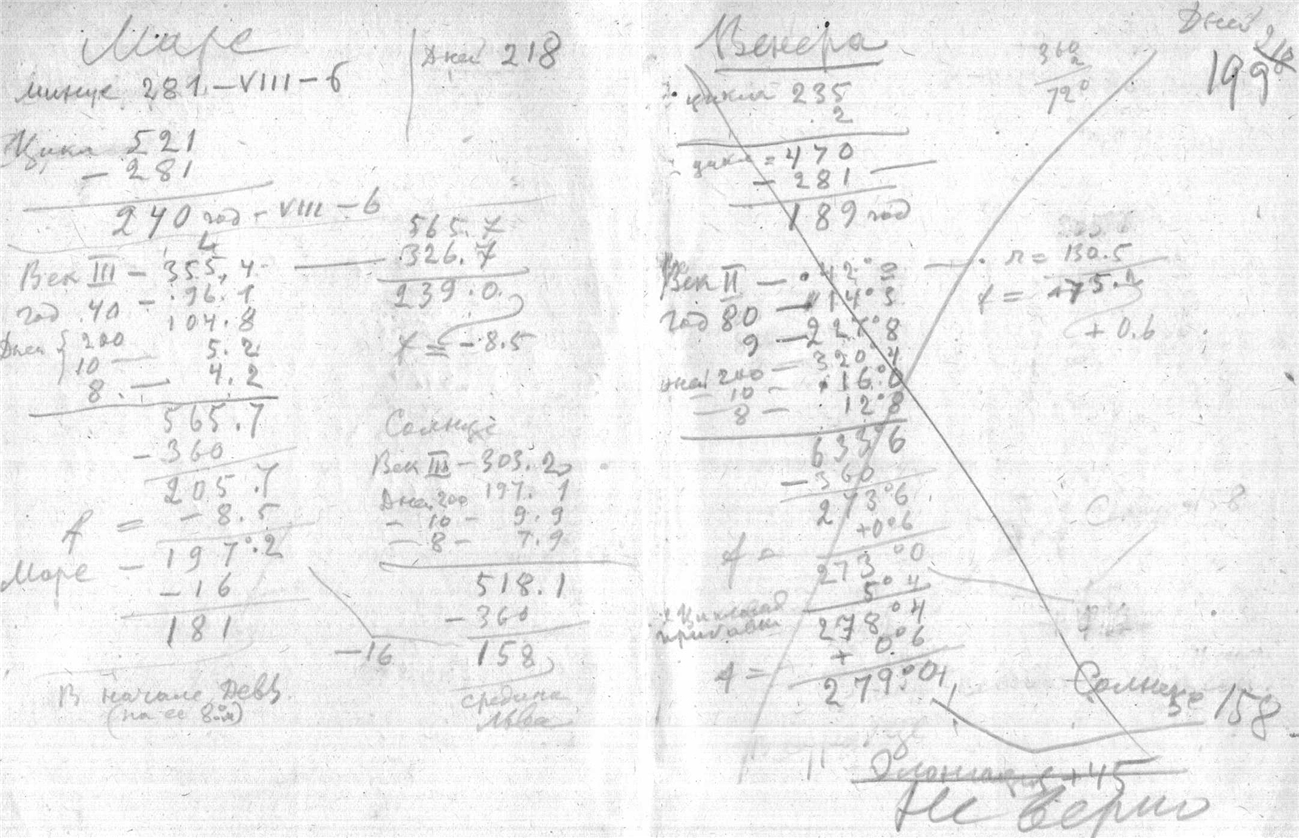 Марс
Дней 218
минус 281 – VIII – 6
Цикл 521
– 281
240 год – VIII – 6
Век III – 355,4
год .40 – .96.1
Дней 200 104.8
10 — 5.2
8. — 4.2
565.7
– 360
205.7
f = – 8.5
Марс – 197°.2
– 16
181
В начале Девы.
(на ее 8ом)
565.7
.326.7
239.0
f = – 8.5
Солнце
Век III – 303.2
Дней 200 197.1
– 10 – 9.9
– 8 – 7.9
518.1
– 360
–16 158
средина
Льва
Венера
Дней
199
360
72°
цикла 235
2
цикл = 470
– 281
189 год
Век II —
год 80 —
9 — 227°8
дней 200 —
– 10 – 16.0
8 – 12°8
633°6
– 360
273°6
+0°6
f =
273°0
5°4
278°4
+ 0°6
f =
279°0
π = 130.5
f =
+ 0.6
Солнце
158
Элонгация +45
Не верно